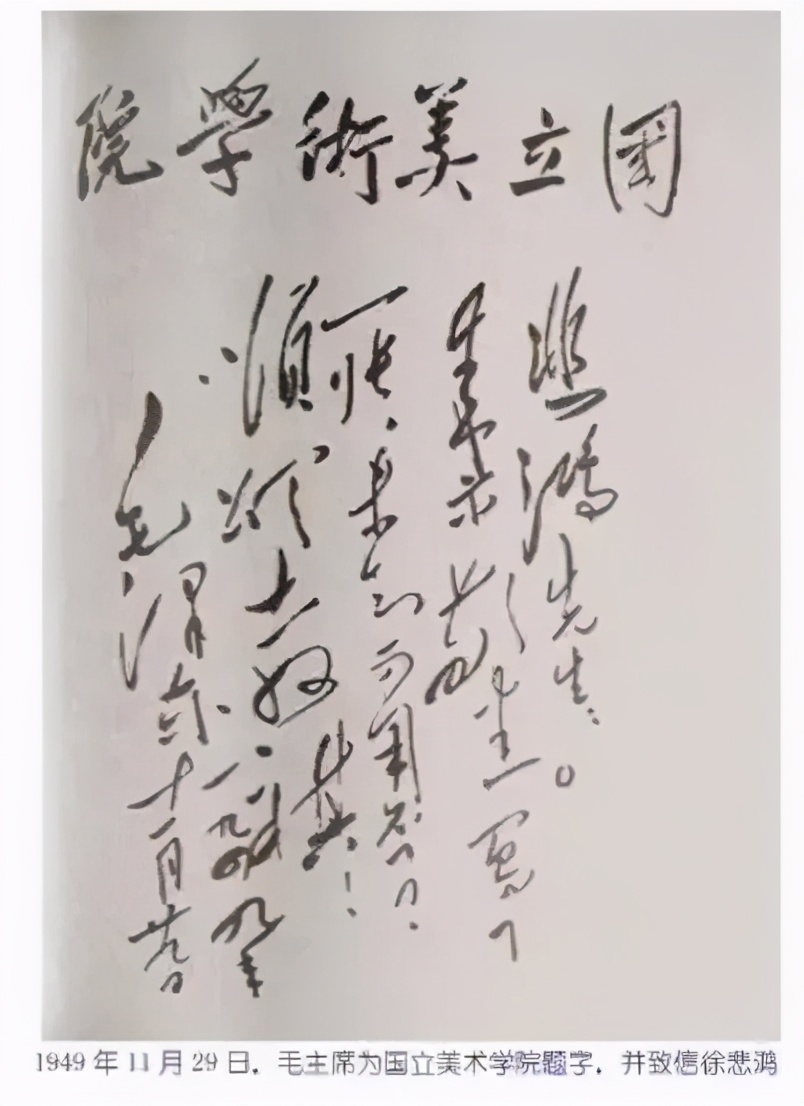 國立美術學院
悲鴻先生：
來示敬悉。寫了
一張，未知可用否？
順頌
教祺！
毛澤東
一九四九年
十一月廿九日
1949 年 11 月 29 日，毛主席为国立美术学院题字，并致信徐悲鸿